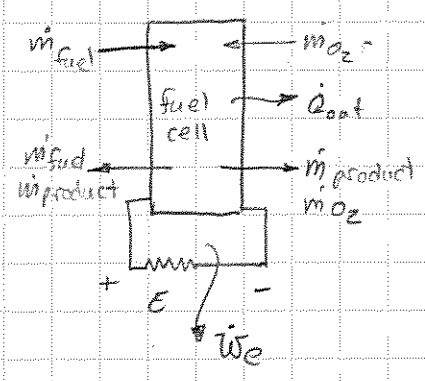 ṁ_fuel
ṁ_O₂
fuel
cell
Q̇_out
ṁ_fuel
ṁ_product
ṁ_product
ṁ_O₂
+
ε
−
Ẇe